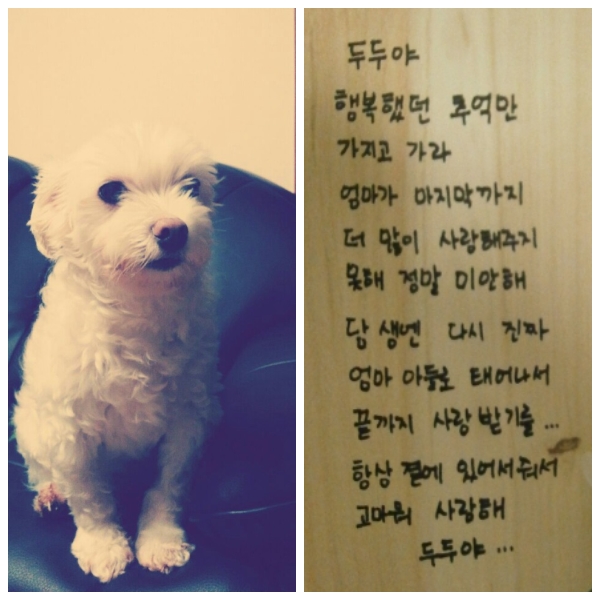 두두야
행복했던 추억만
가지고 가라
엄마가 마지막까지
더 많이 사랑해주지
못해 정말 미안해
담 생엔 다시 진짜
엄마 아들로 태어나서
끝까지 사랑 받기를...
항상 곁에 있어서줘서
고마워 사랑해
두두야...